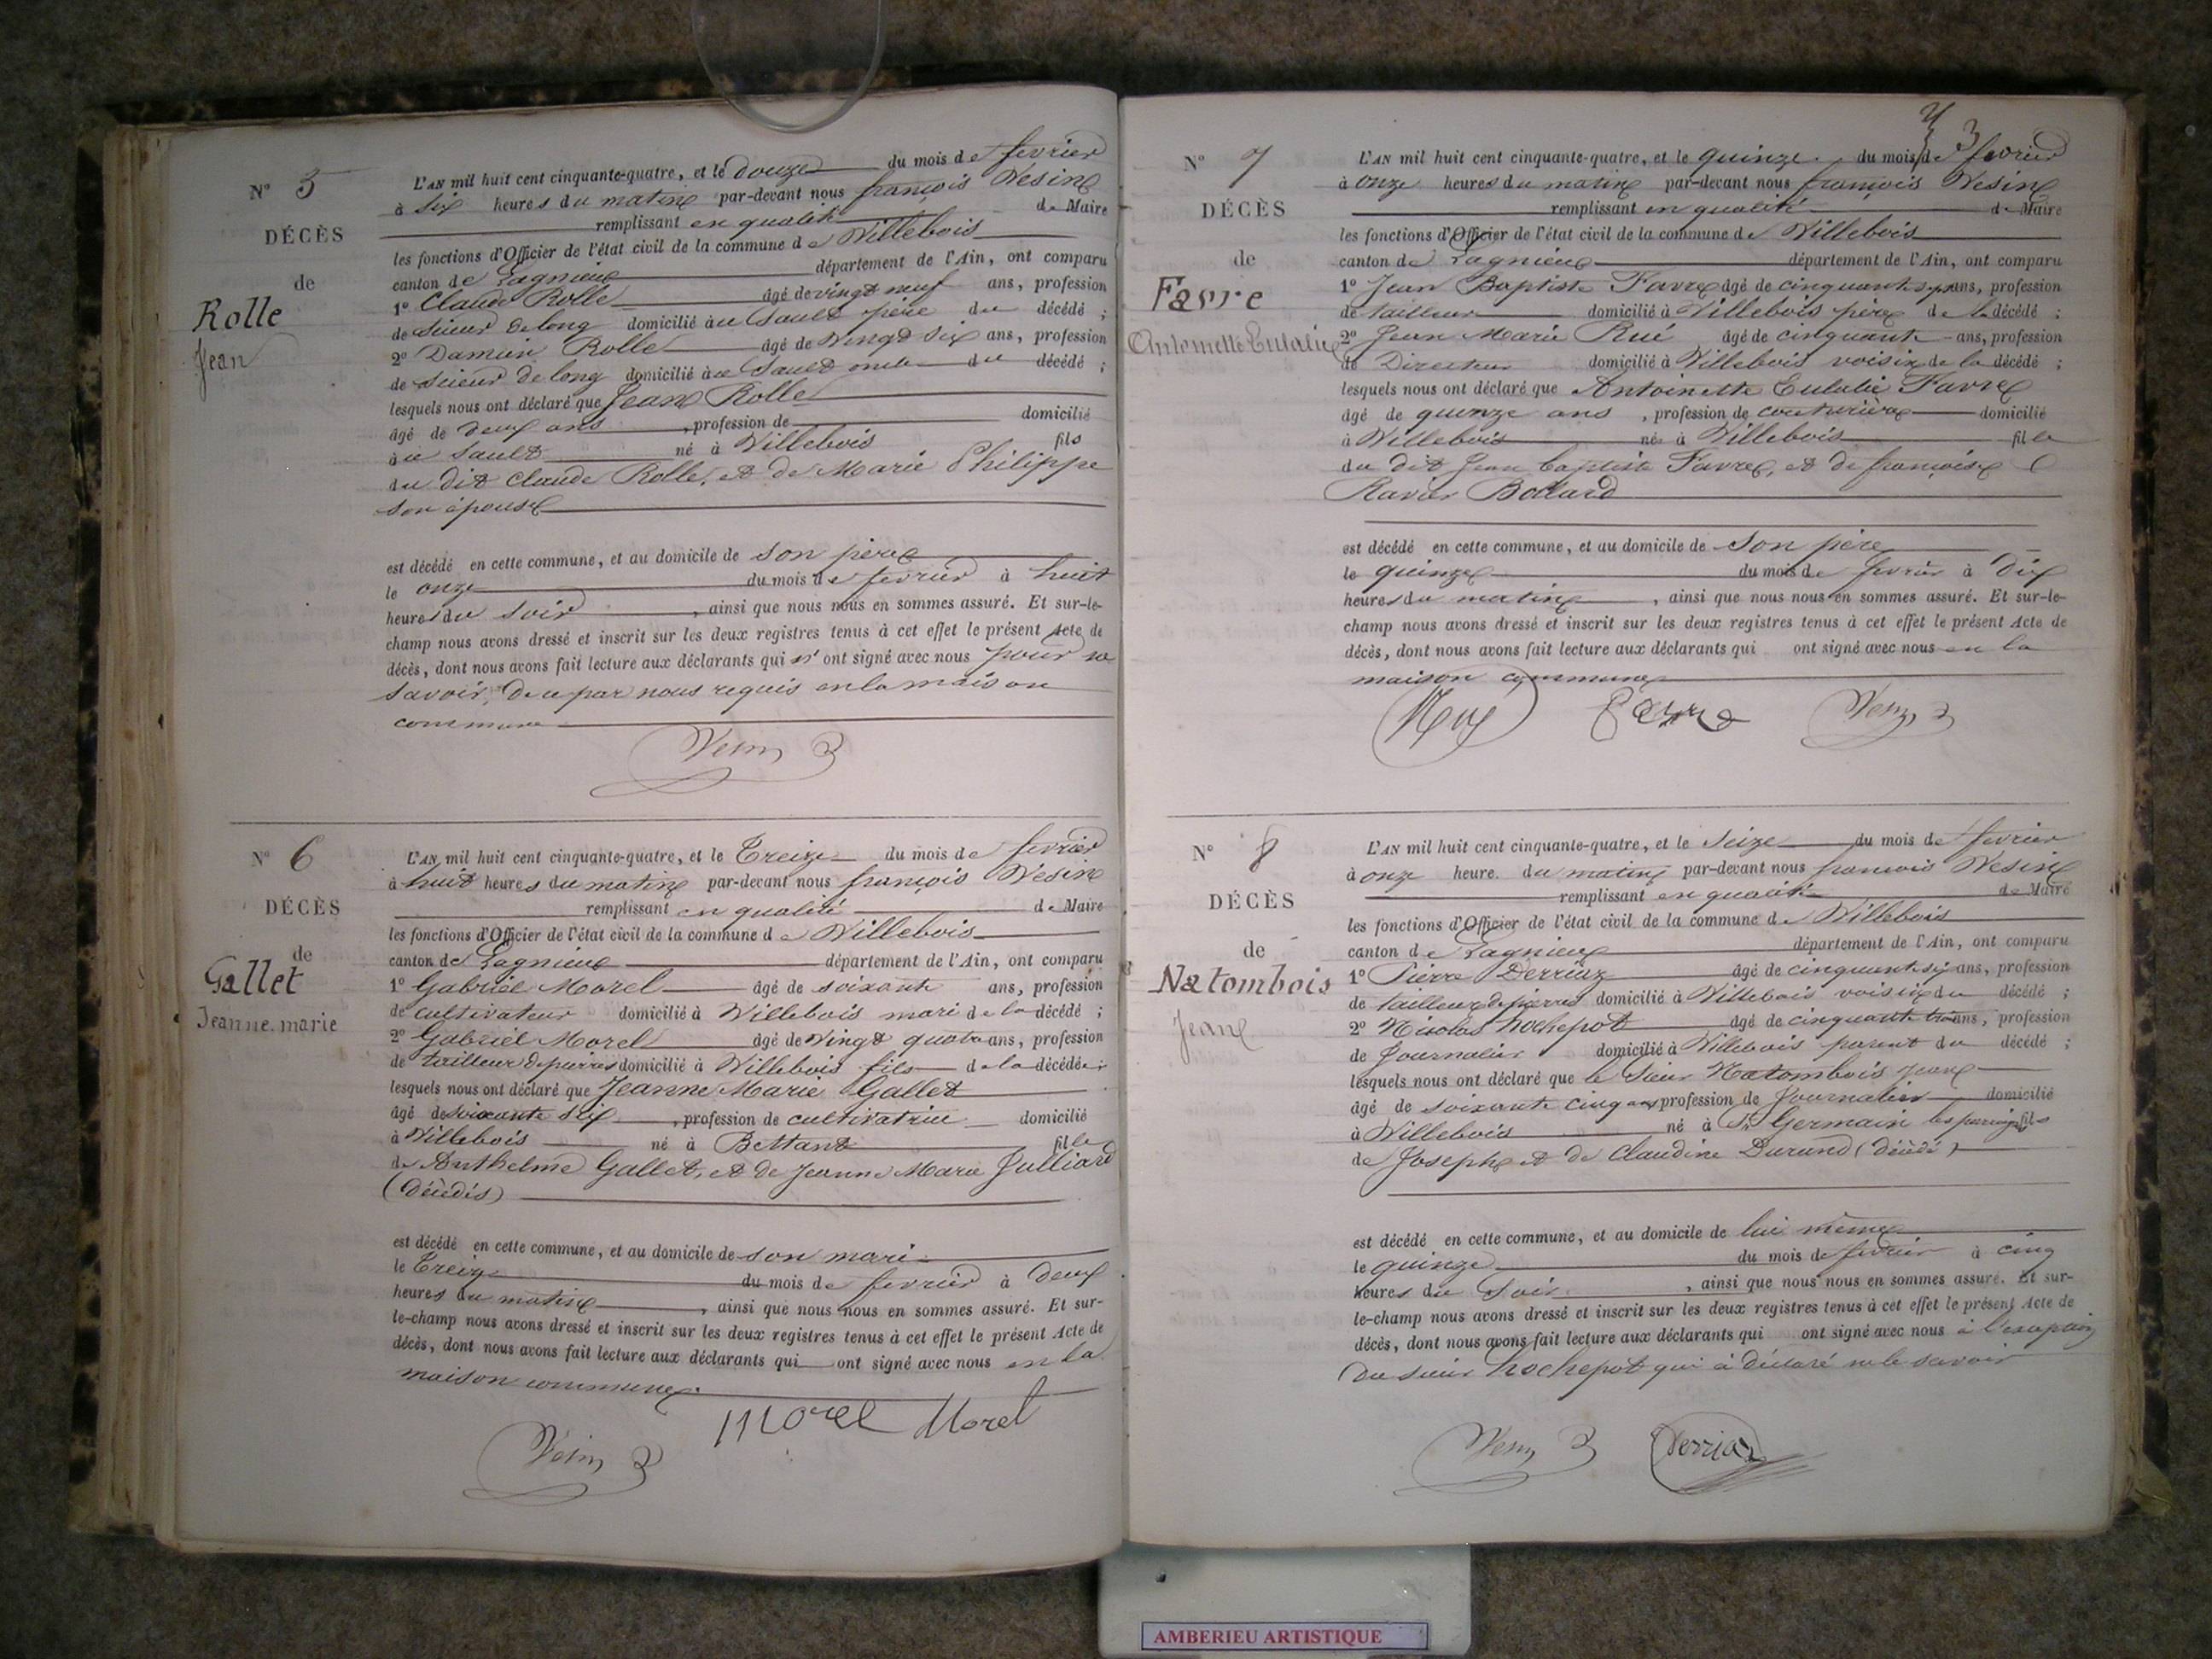 N° 5
DÉCÈS
de
Rolle
Jean
L'AN mil huit cent cinquante-quatre, et le douze du mois de fevrier
à six heures du matin par-devant nous françois Vesin
remplissant en qualité de Maire
les fonctions d'Officier de l'état civil de la commune de Villebois
canton de Lagnieu département de l'Ain, ont comparu
1° Claude Rolle âgé de vingt neuf ans, profession
de scieur de long domicilié au Sault père du décédé ;
2° Damien Rolle âgé de vingt six ans, profession
de scieur de long domicilié au Sault oncle du décédé ;
lesquels nous ont déclaré que Jean Rolle
âgé de deux ans , profession de domicilié
au Sault né à Villebois fils
du dit Claude Rolle, et de Marie Philippe
son épouse
est décédé en cette commune, et au domicile de son père
le onze du mois de fevrier à huit
heures du soir , ainsi que nous nous en sommes assuré. Et sur-le-
champ nous avons dressé et inscrit sur les deux registres tenus à cet effet le présent Acte de
décès, dont nous avons fait lecture aux déclarants qui n'ont signé avec nous pour ne
savoir, de ce par nous requis en la maison
commune
Vesin
N° 6
DÉCÈS
de
Gallet
Jeanne marie
L'AN mil huit cent cinquante-quatre, et le Treize du mois de fevrier
à huit heures du matin par-devant nous françois Vesin
remplissant en qualité de Maire
les fonctions d'Officier de l'état civil de la commune de Villebois
canton de Lagnieu département de l'Ain, ont comparu
1° Gabriel Morel âgé de soixante ans, profession
de cultivateur domicilié à Villebois mari de la décédé ;
2° Gabriel Morel âgé de vingt quatre ans, profession
de tailleur de pierres domicilié à Villebois fils de la décédée ;
lesquels nous ont déclaré que Jeanne Marie Gallet
âgé de soixante six , profession de cultivatrice domicilié
à Villebois né à Bettant fille
de Anthelme Gallet, et de Jeanne Marie Julliard
(décédés)
est décédé en cette commune, et au domicile de son mari
le Treize du mois de fevrier à deux
heures du matin , ainsi que nous nous en sommes assuré. Et sur-
le-champ nous avons dressé et inscrit sur les deux registres tenus à cet effet le présent Acte de
décès, dont nous avons fait lecture aux déclarants qui ont signé avec nous en la
maison commune.
morel Morel
Vesin
3
N° 7
DÉCÈS
de
Favre
Antoinette Eulalie
L'AN mil huit cent cinquante-quatre, et le quinze du mois de fevrier
à onze heures du matin par-devant nous françois Vesin
remplissant en qualité de Maire
les fonctions d'Officier de l'état civil de la commune de Villebois
canton de Lagnieu département de l'Ain, ont comparu
1° Jean Baptiste Favre âgé de cinquante sept ans, profession
de tailleur domicilié à Villebois père de la décédé ;
2° Jean Marie Rué âgé de cinquante ans, profession
de Directeur domicilié à Villebois voisin de la décédé ;
lesquels nous ont déclaré que Antoinette Eulalie Favre
âgé de quinze ans , profession de couturière domicilié
à Villebois née à Villebois fille
du dit Jean baptiste Favre, et de françoise
Ravier Bollard
est décédé en cette commune, et au domicile de son père
le quinze du mois de fevrier à Dix
heures du matin , ainsi que nous nous en sommes assuré. Et sur-le-
champ nous avons dressé et inscrit sur les deux registres tenus à cet effet le présent Acte de
décès, dont nous avons fait lecture aux déclarants qui ont signé avec nous en la
maison commune
Favre Vesin
N° 8
DÉCÈS
de
Natombois
Jean
L'AN mil huit cent cinquante-quatre, et le seize du mois de fevrier
à onze heure du matin par-devant nous francois Vesin
remplissant en qualité de Maire
les fonctions d'Officier de l'état civil de la commune de Villebois
canton de Lagnieu département de l'Ain, ont comparu
1° Pierre Derriaz âgé de cinquante six ans, profession
de tailleur de pierres domicilié à Villebois voisin du décédé ;
2° Nicolas hochepot âgé de cinquante trois ans, profession
de Journalier domicilié à Villebois parent du décédé ;
lesquels nous ont déclaré que le sieur Natombois jean
âgé de soixante cinq ans profession de Journalier domicilié
à Villebois né à St Germain les paroisses fils
de Joseph et de Claudine Durand (décédé)
est décédé en cette commune, et au domicile de lui même
le quinze du mois de fevrier à cinq
heures du soir , ainsi que nous nous en sommes assuré. Et sur-
le-champ nous avons dressé et inscrit sur les deux registres tenus à cet effet le présent Acte de
décès, dont nous avons fait lecture aux déclarants qui ont signé avec nous à l'exception
du sieur hochepot qui à déclaré ne le savoir
Vesin Derriaz
AMBERIEU ARTISTIQUE